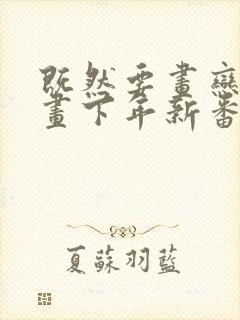 既然要畫戀
畫下年新番
夏蘇羽藍